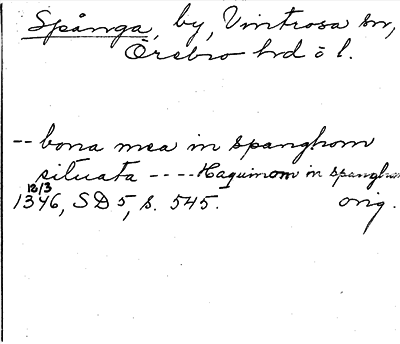 Spånga, by, Vintrosa sn,
Örebro hrd o l.
-- bona mea in spanghom
situata ---- Haquinom in spanghom
12/3
1346, SD 5, s. 545. orig.